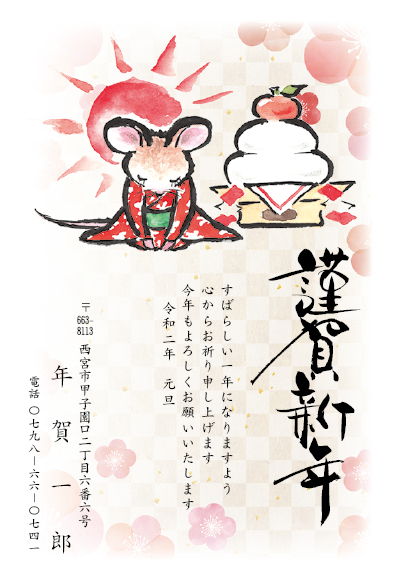 謹賀新年
すばらしい一年になりますよう
心からお祈り申し上げます
今年もよろしくお願いいたします
令和二年　元旦
〒663-8113
西宮市甲子園口二丁目六番六号
年賀一郎
電話　〇七九八―六六―〇七四一